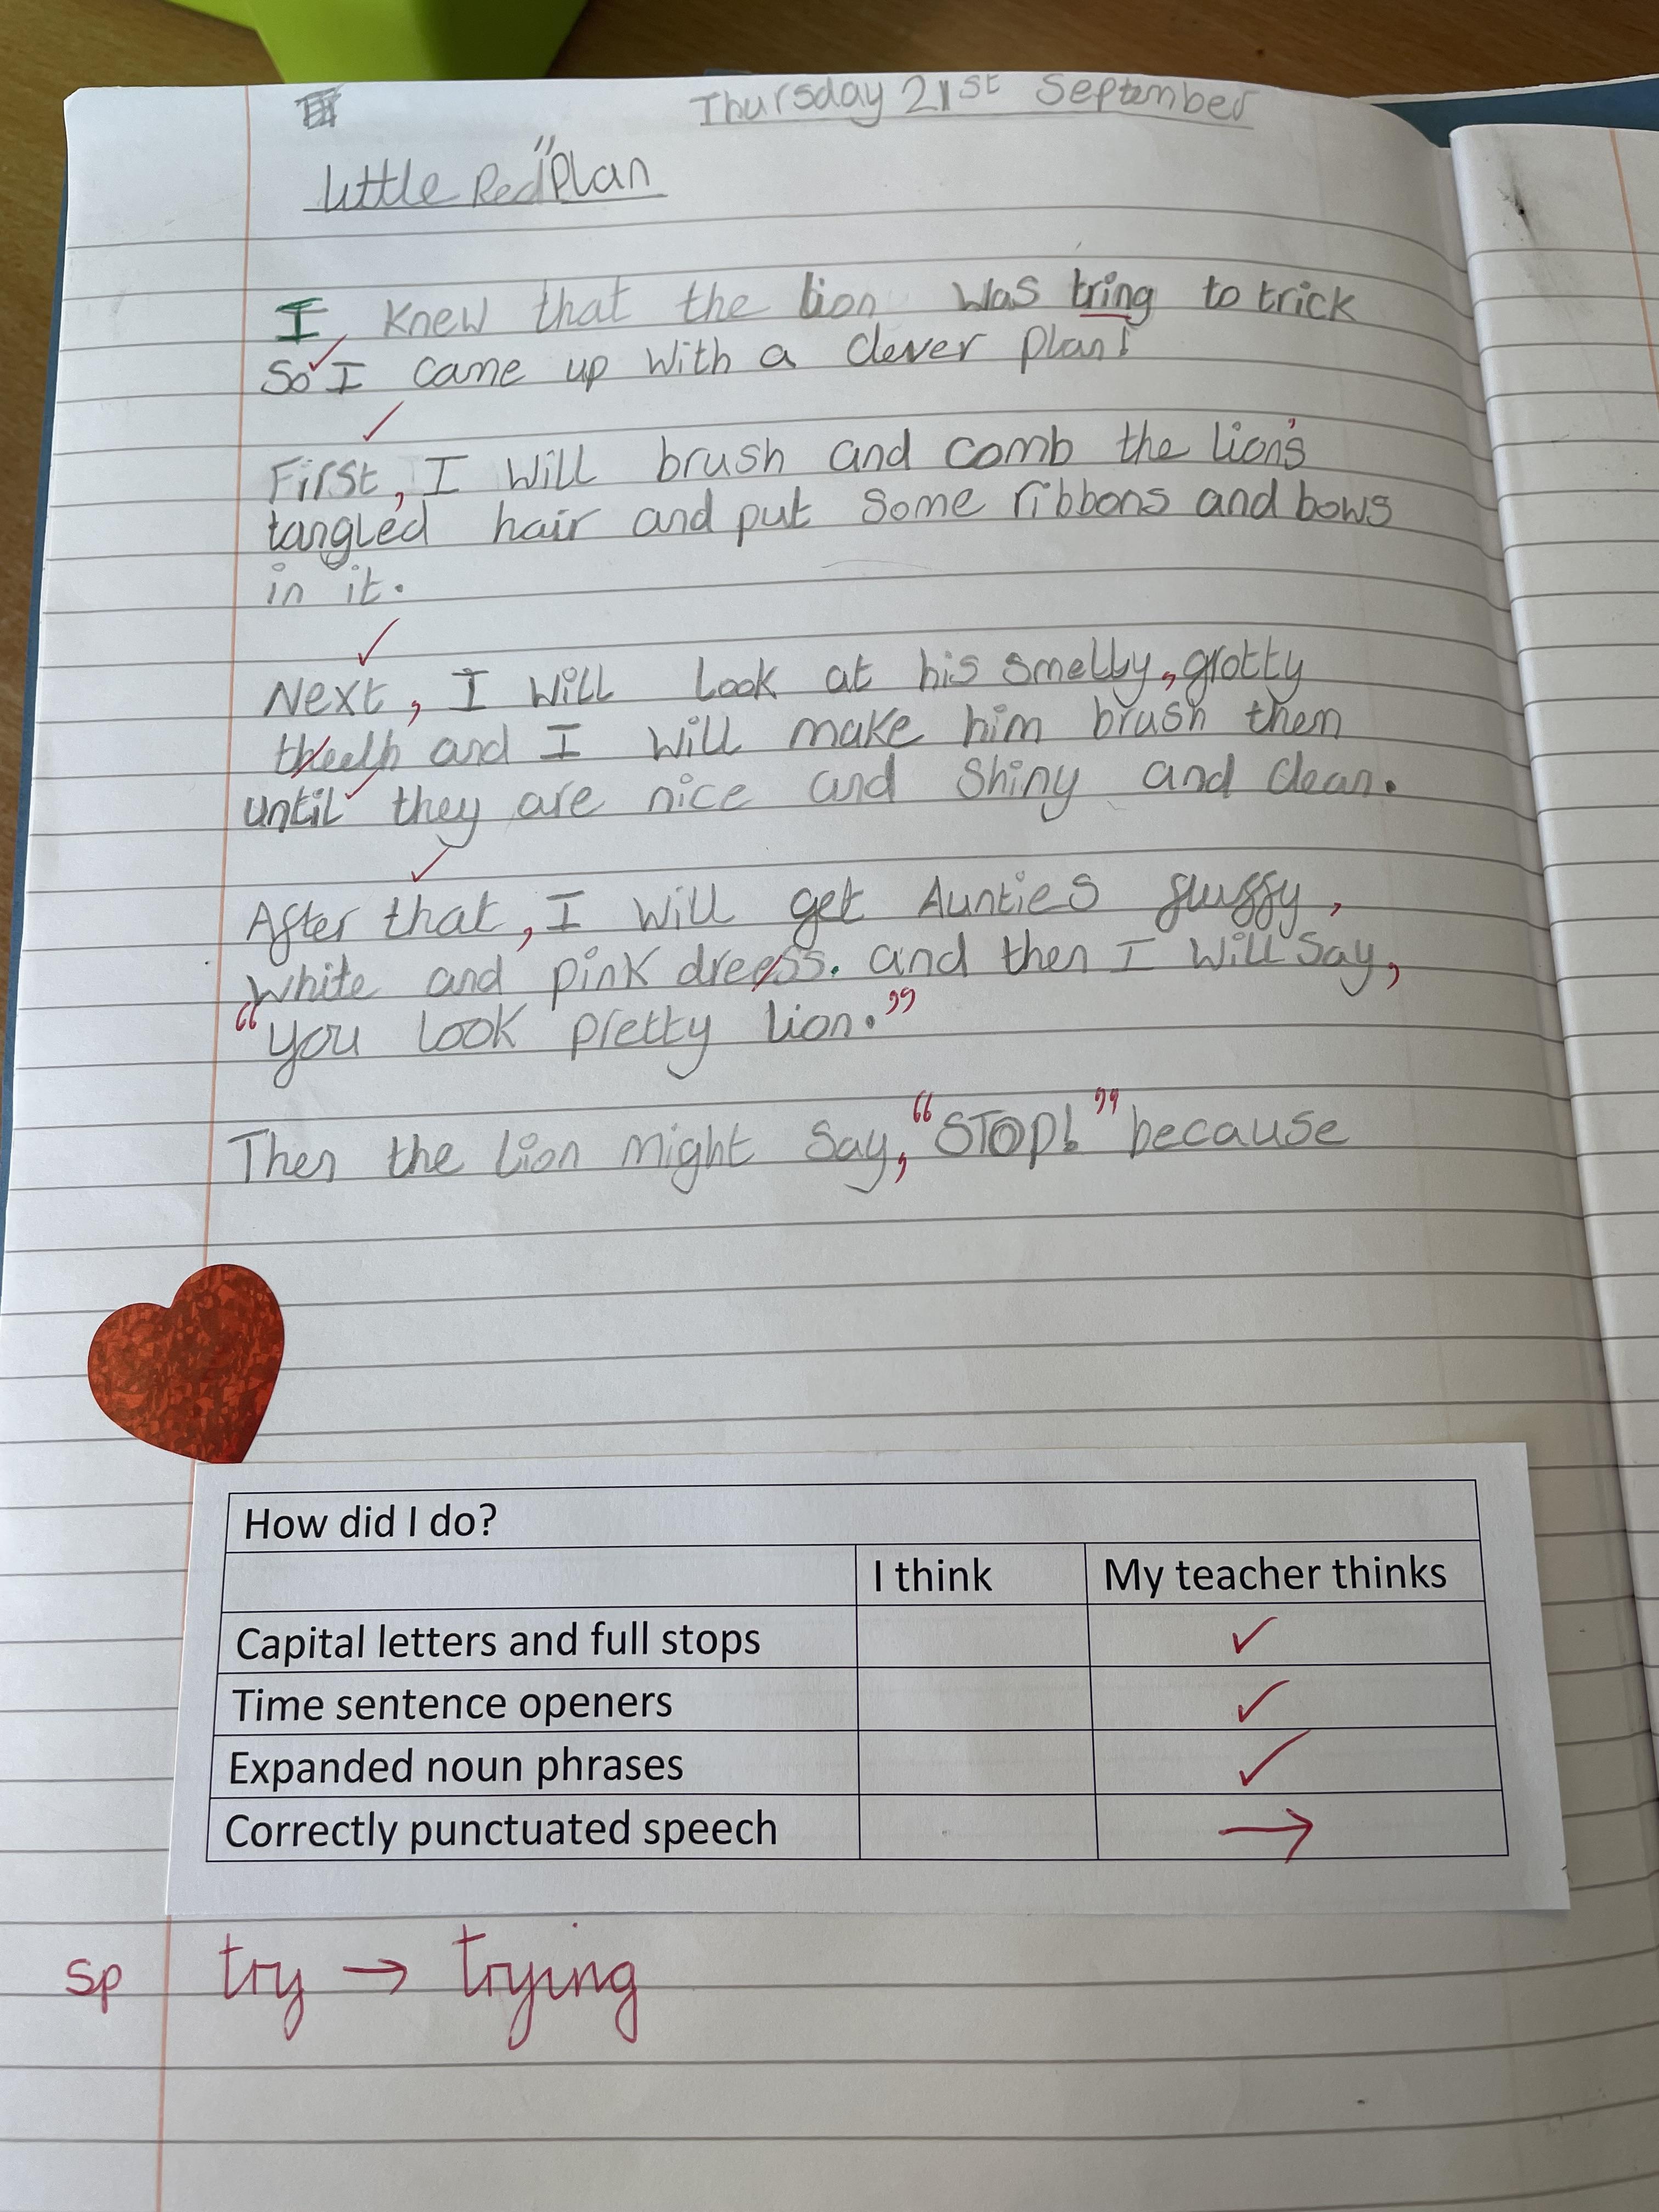 Thursday 21st September
Little Red"Plan
I knew that the lion was tring to trick
So I came up with a clever plan!
First, I will brush and comb the lion's
tangled hair and put some ribbons and bows
in it.
Next, I will look at his smelly, grotty
theeth and I will make him brush then
until they are nice and shiny and clean.
After that, I will get Aunties fluffy,
white and pink dreess. and then I will say,
“you look pretty lion.”
Then the lion might say, “STOP!” because
How did I do?
I think My teacher thinks
Capital letters and full stops ✓
Time sentence openers ✓
Expanded noun phrases ✓
Correctly punctuated speech →
sp try → trying